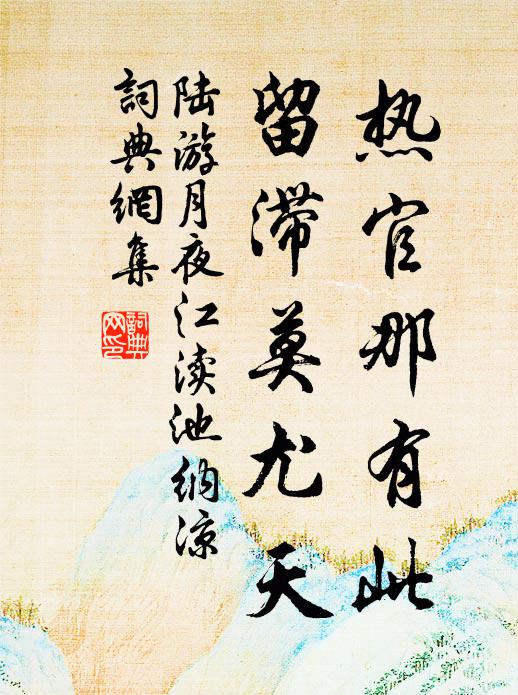 热官那有此
留滞莫尤天
陆游月夜江渎池纳凉
词典網集
詞典
网印